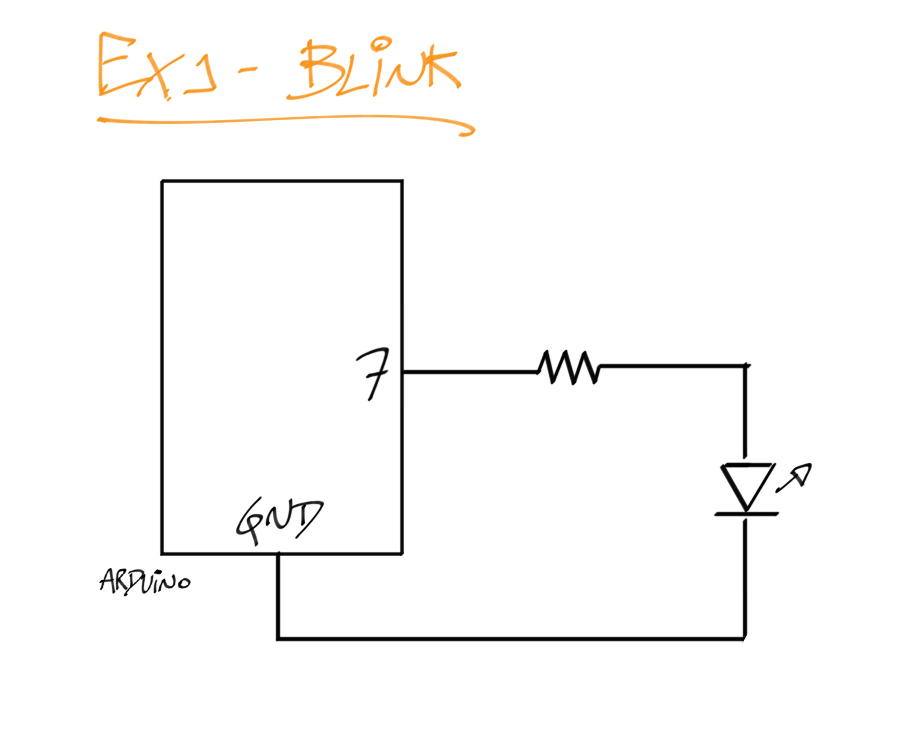 Ex1 - BLiNK
7
GND
ARDUiNO